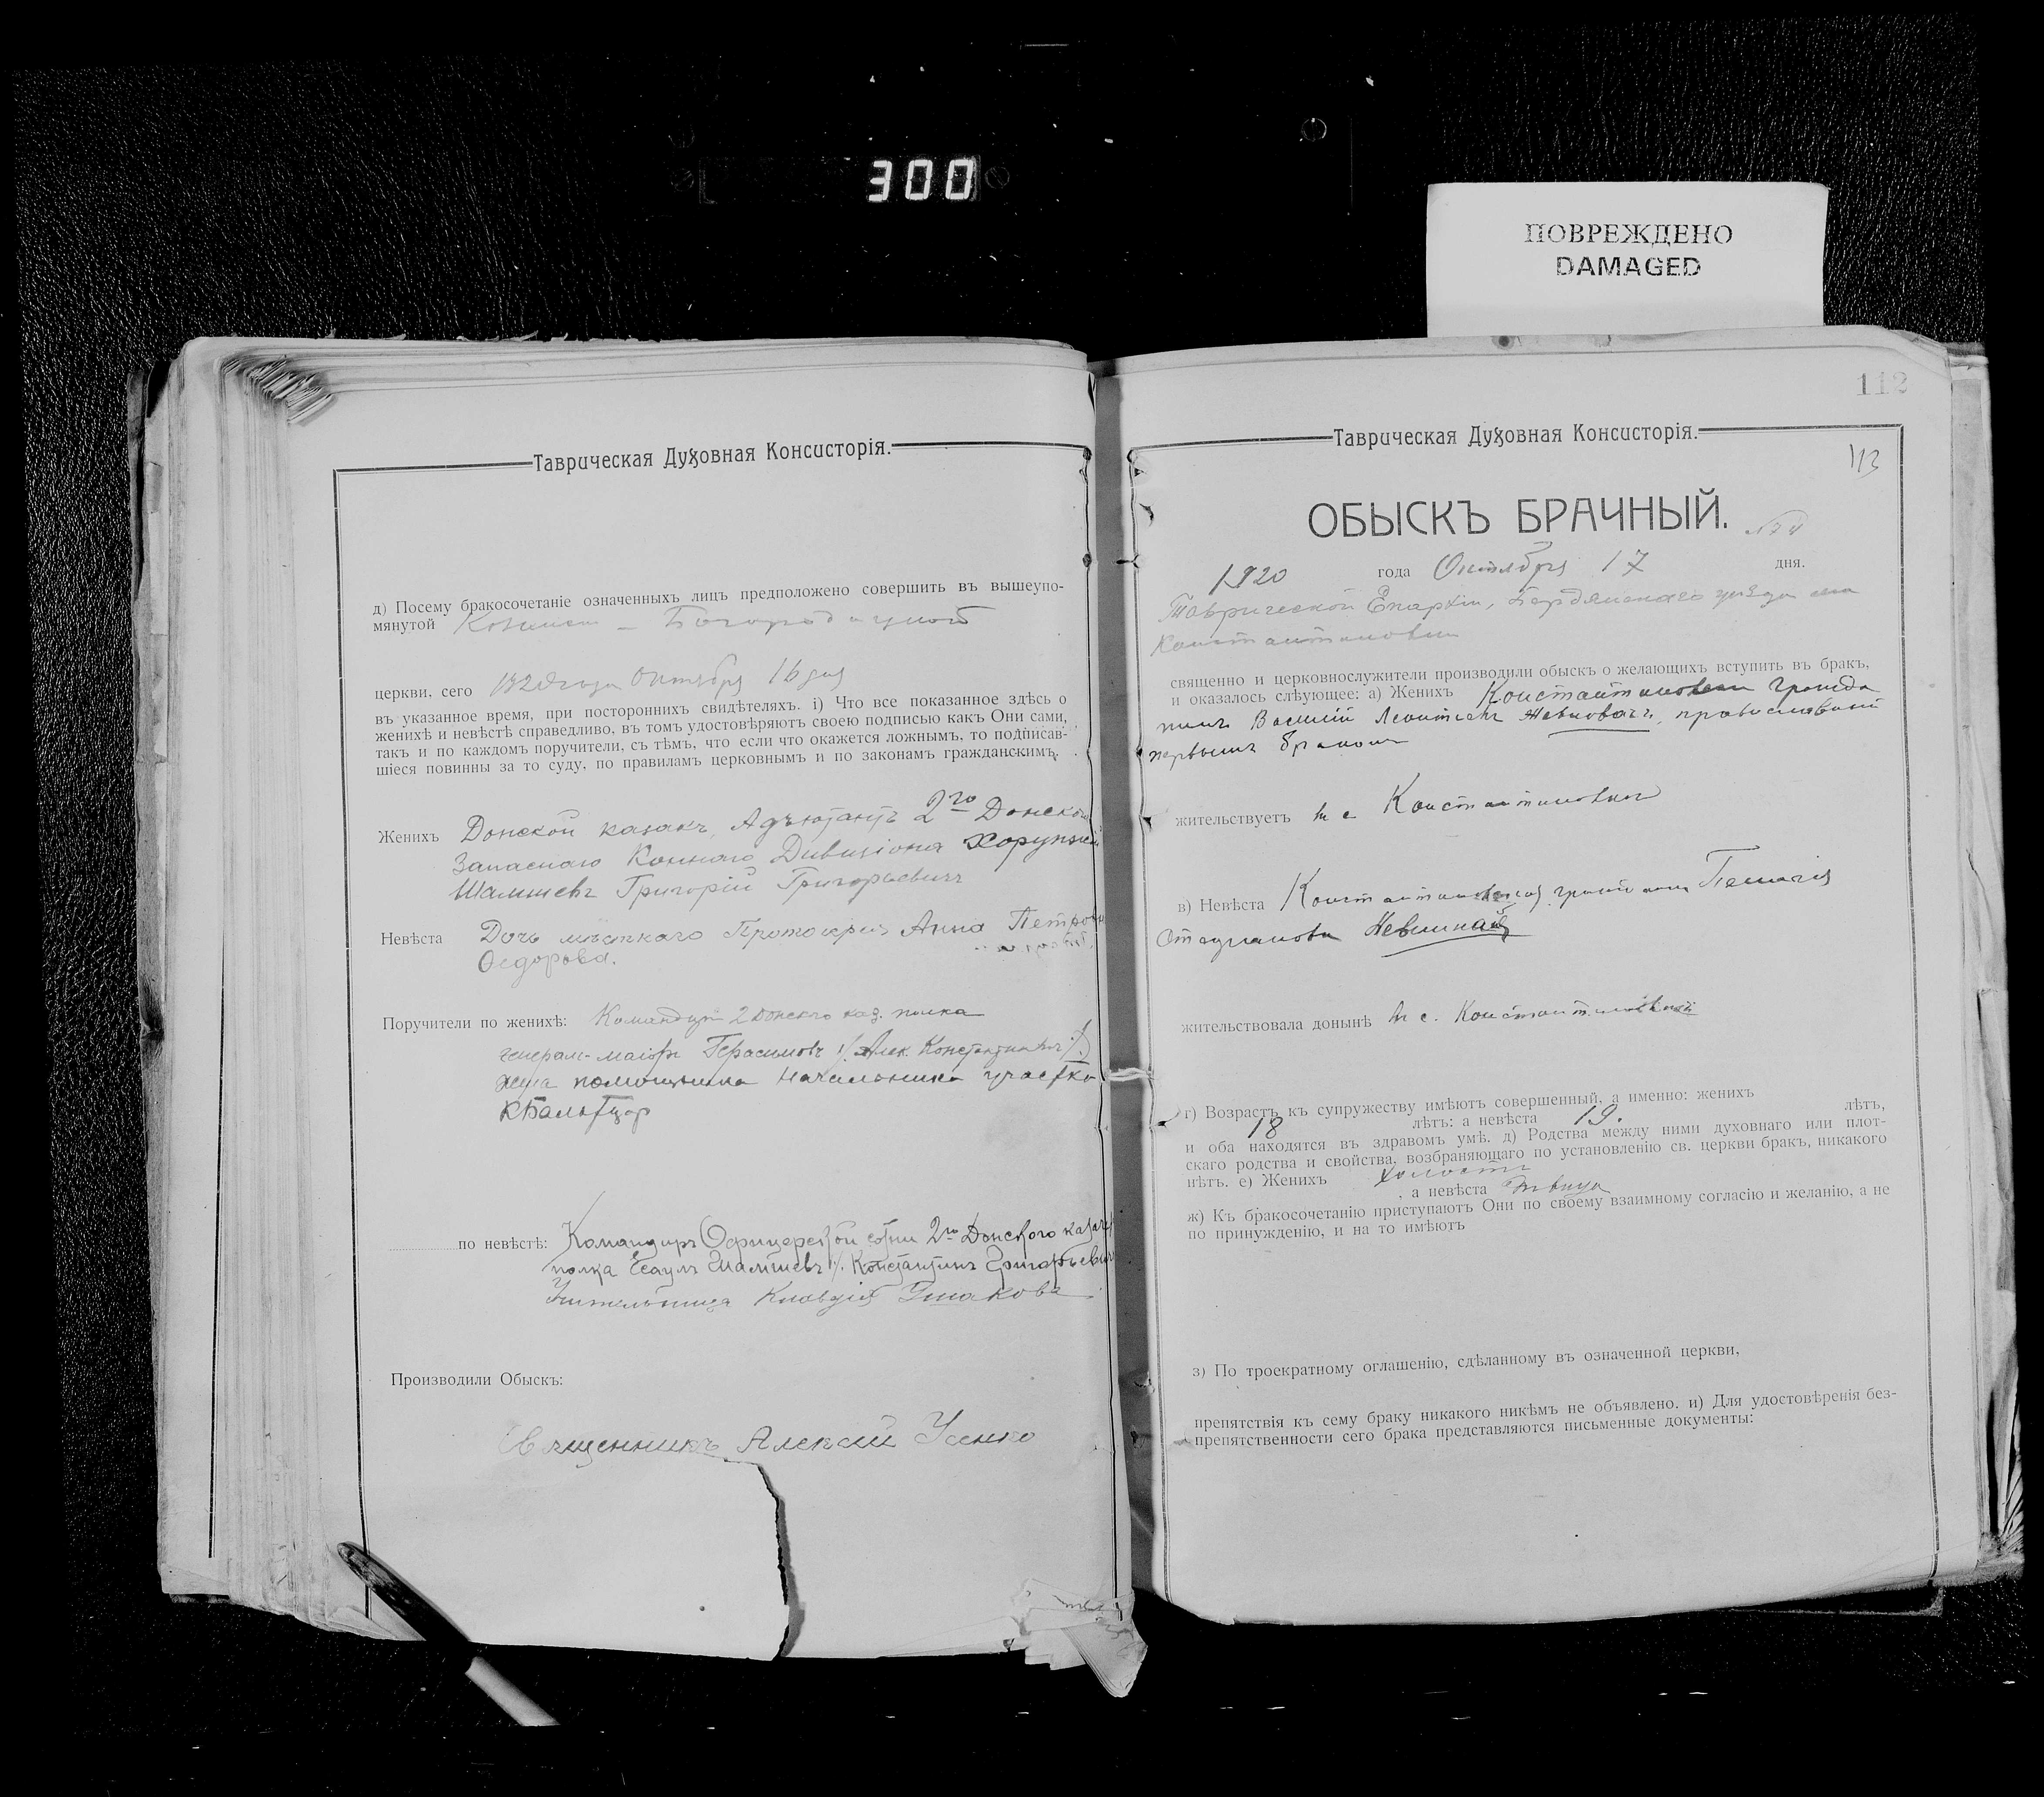 300
ПОВРЕЖДЕНО
DAMAGED
Таврическая Духовная Консисторія.
д) Посему бракосочетаніе означенныхъ лицъ предположено совершить въ вышеупо-
мянутой Богородичной
церкви, сего 1920 года Октября 16 дня
въ указанное время, при постороннихъ свидѣтеляхъ. і) Что все показанное здѣсь о
женихѣ и невѣстѣ справедливо, въ томъ удостовѣряютъ своею подписью какъ Они сами,
такъ и по каждомъ поручители, съ тѣмъ, что если что окажется ложнымъ, то подписав-
шіеся повинны за то суду, по правиламъ церковнымъ и по законамъ гражданскимъ.
Женихъ Донской казакъ, Адъютантъ 2го Донского
Запаснаго Коннаго Дивизіона Хорунжій
Шамшевъ Григорій Григорьевичъ
Невѣста Дочь мѣстнаго Протоіерея Анна Петровна
Федорова.
Поручители по женихѣ: Командиръ 2 Донского каз. полка
генерал-маіоръ Герасимовъ /Алек. Константинович/
жена помощника начальника участка
по невѣстѣ: Командиръ Офицерской сотни 2го Донского казач
полка Есаулъ Шамшевъ /. Константинъ Григорьевич
Учительница Клавдія Ушакова
Производили Обыскъ:
Священникъ Алексій Усенко
112
Таврическая Духовная Консисторія.
113
ОБЫСКЪ БРАЧНЫЙ.
1920 года Октября 17 дня.
Таврической Епархіи, Бердянскаго уѣзда села
Константиновки
священно и церковнослужители производили обыскъ о желающихъ вступить въ бракъ,
и оказалось слѣующее: а) Женихъ Константиновскій гражда
нинъ Василій Леонтіевъ православный
первымъ бракомъ
жительствуетъ въ с. Константиновкѣ
в) Невѣста Константиновская Пелагія
Стефанова
жительствовала донынѣ въ с. Константиновкѣ
г) Возрастъ къ супружеству имѣютъ совершенный, а именно: женихъ
18 лѣтъ: а невѣста 19. лѣтъ,
и оба находятся въ здравомъ умѣ. д) Родства между ними духовнаго или плот-
скаго родства и свойства, возбраняющаго по установленію св. церкви бракъ, никакого
нѣтъ. е) Женихъ холостъ
, а невѣста дѣвица
ж) Къ бракосочетанію приступаютъ Они по своему взаимному согласію и желанію, а не
по принужденію, и на то имѣютъ
з) По троекратному оглашенію, сдѣланному въ означенной церкви,
препятствія къ сему браку никакого никѣмъ не объявлено. и) Для удостовѣренія без-
препятственности сего брака представляются письменные документы: